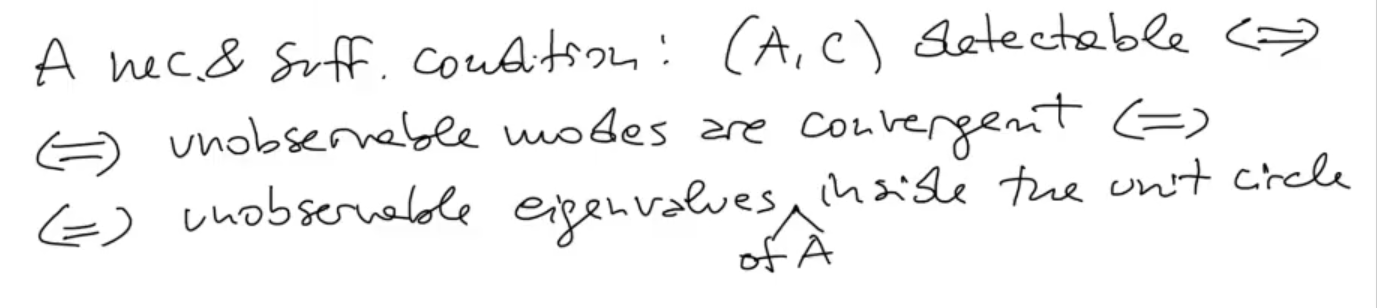 A nec. & suff. condition: (A, C) detectable ⟺
⟺ unobservable modes are convergent ⟺
⟺ unobservable eigenvalues of A inside the unit circle